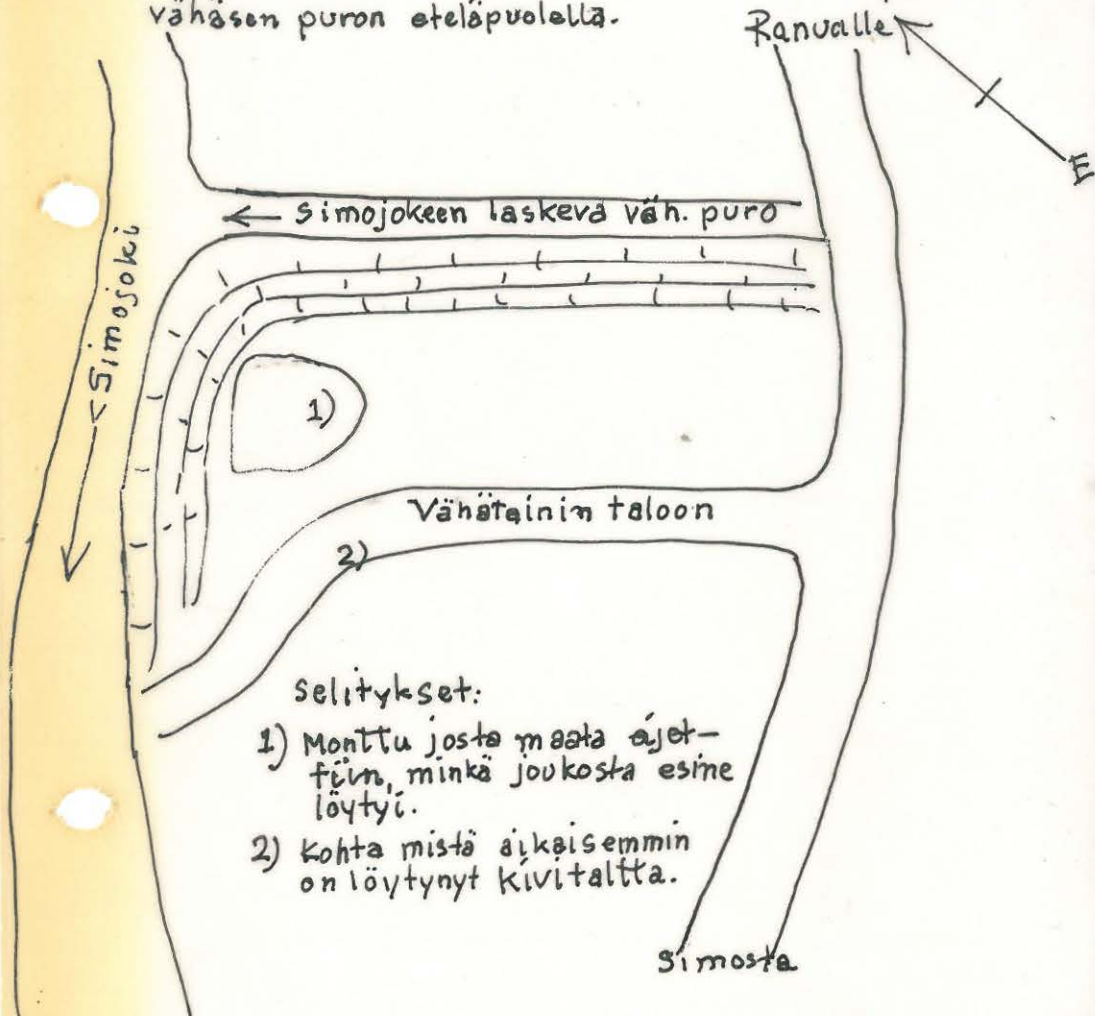 vähäsen puron eteläpuolella.
Ranualle
E
← Simojokeen laskeva väh. puro
← Simojoki
1)
Vähätainin taloon
2)
Selitykset:
1) Monttu josta maata ajet-
tiin, minkä joukosta esine
löytyi.
2) Kohta mistä aikaisemmin
on löytynyt kivitaltta.
Simosta